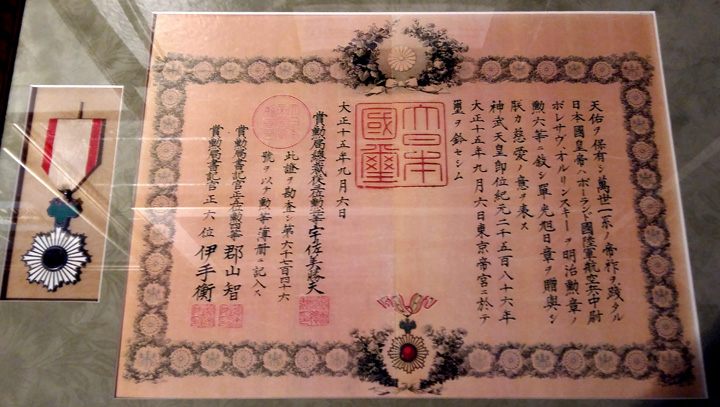 天佑ヲ保有シ萬世一系ノ帝祚ヲ踐タル
日本國皇帝ハポーランド國陸軍航空兵中尉
ボレサウ、オルリンスキーヲ明治勲章ノ
勲六等ニ敍シ單光旭日章ヲ贈與シ
朕カ慈愛ノ意ヲ表ス
神武天皇即位紀元二千五百八十六年
大正十五年九月六日東京帝宮ニ於テ
璽ヲ鈐セシム
大日本
國璽
大正十五年九月六日
賞勲局總裁從三位勲二等
此證ヲ勘査シ第六十七百四十六
號ヲ以テ勲等簿冊ニ記入ス
賞勲局書記官正五位勲四等 郡山智
賞勲局書記官正六位 伊手衡